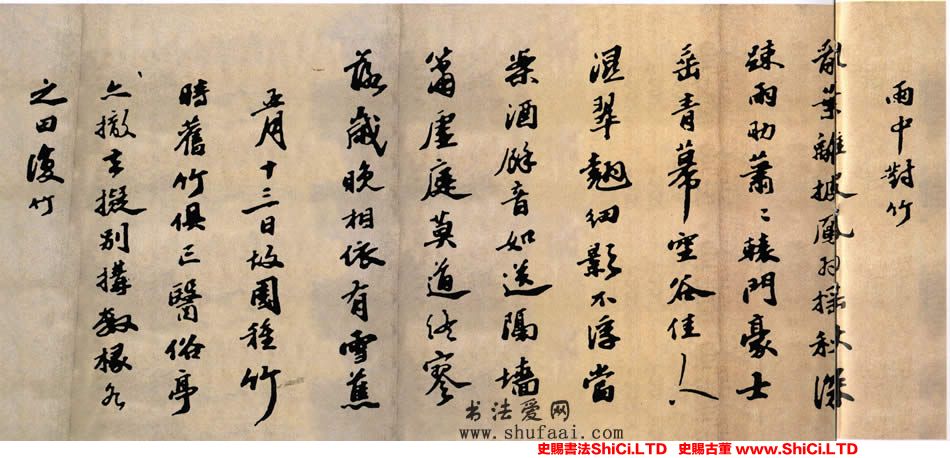 雨中對竹
亂葉離披鳳羽搖秋深
疎雨助蕭〻轅門豪士
垂青幕空谷佳人
濕翠翹細影不浮當
檠酒餘音如送隔墻
簫虛庭莫道終寥
落歲晚相依有雪蕉
五月十三日故園種竹
時舊竹俱亡醫俗亭
亦撤去擬別搆數椽名
之曰復竹
书法爱网
www.shufaai.com
史賜書法ShiCi.LTD 史賜古董 www.ShiCi.LTD